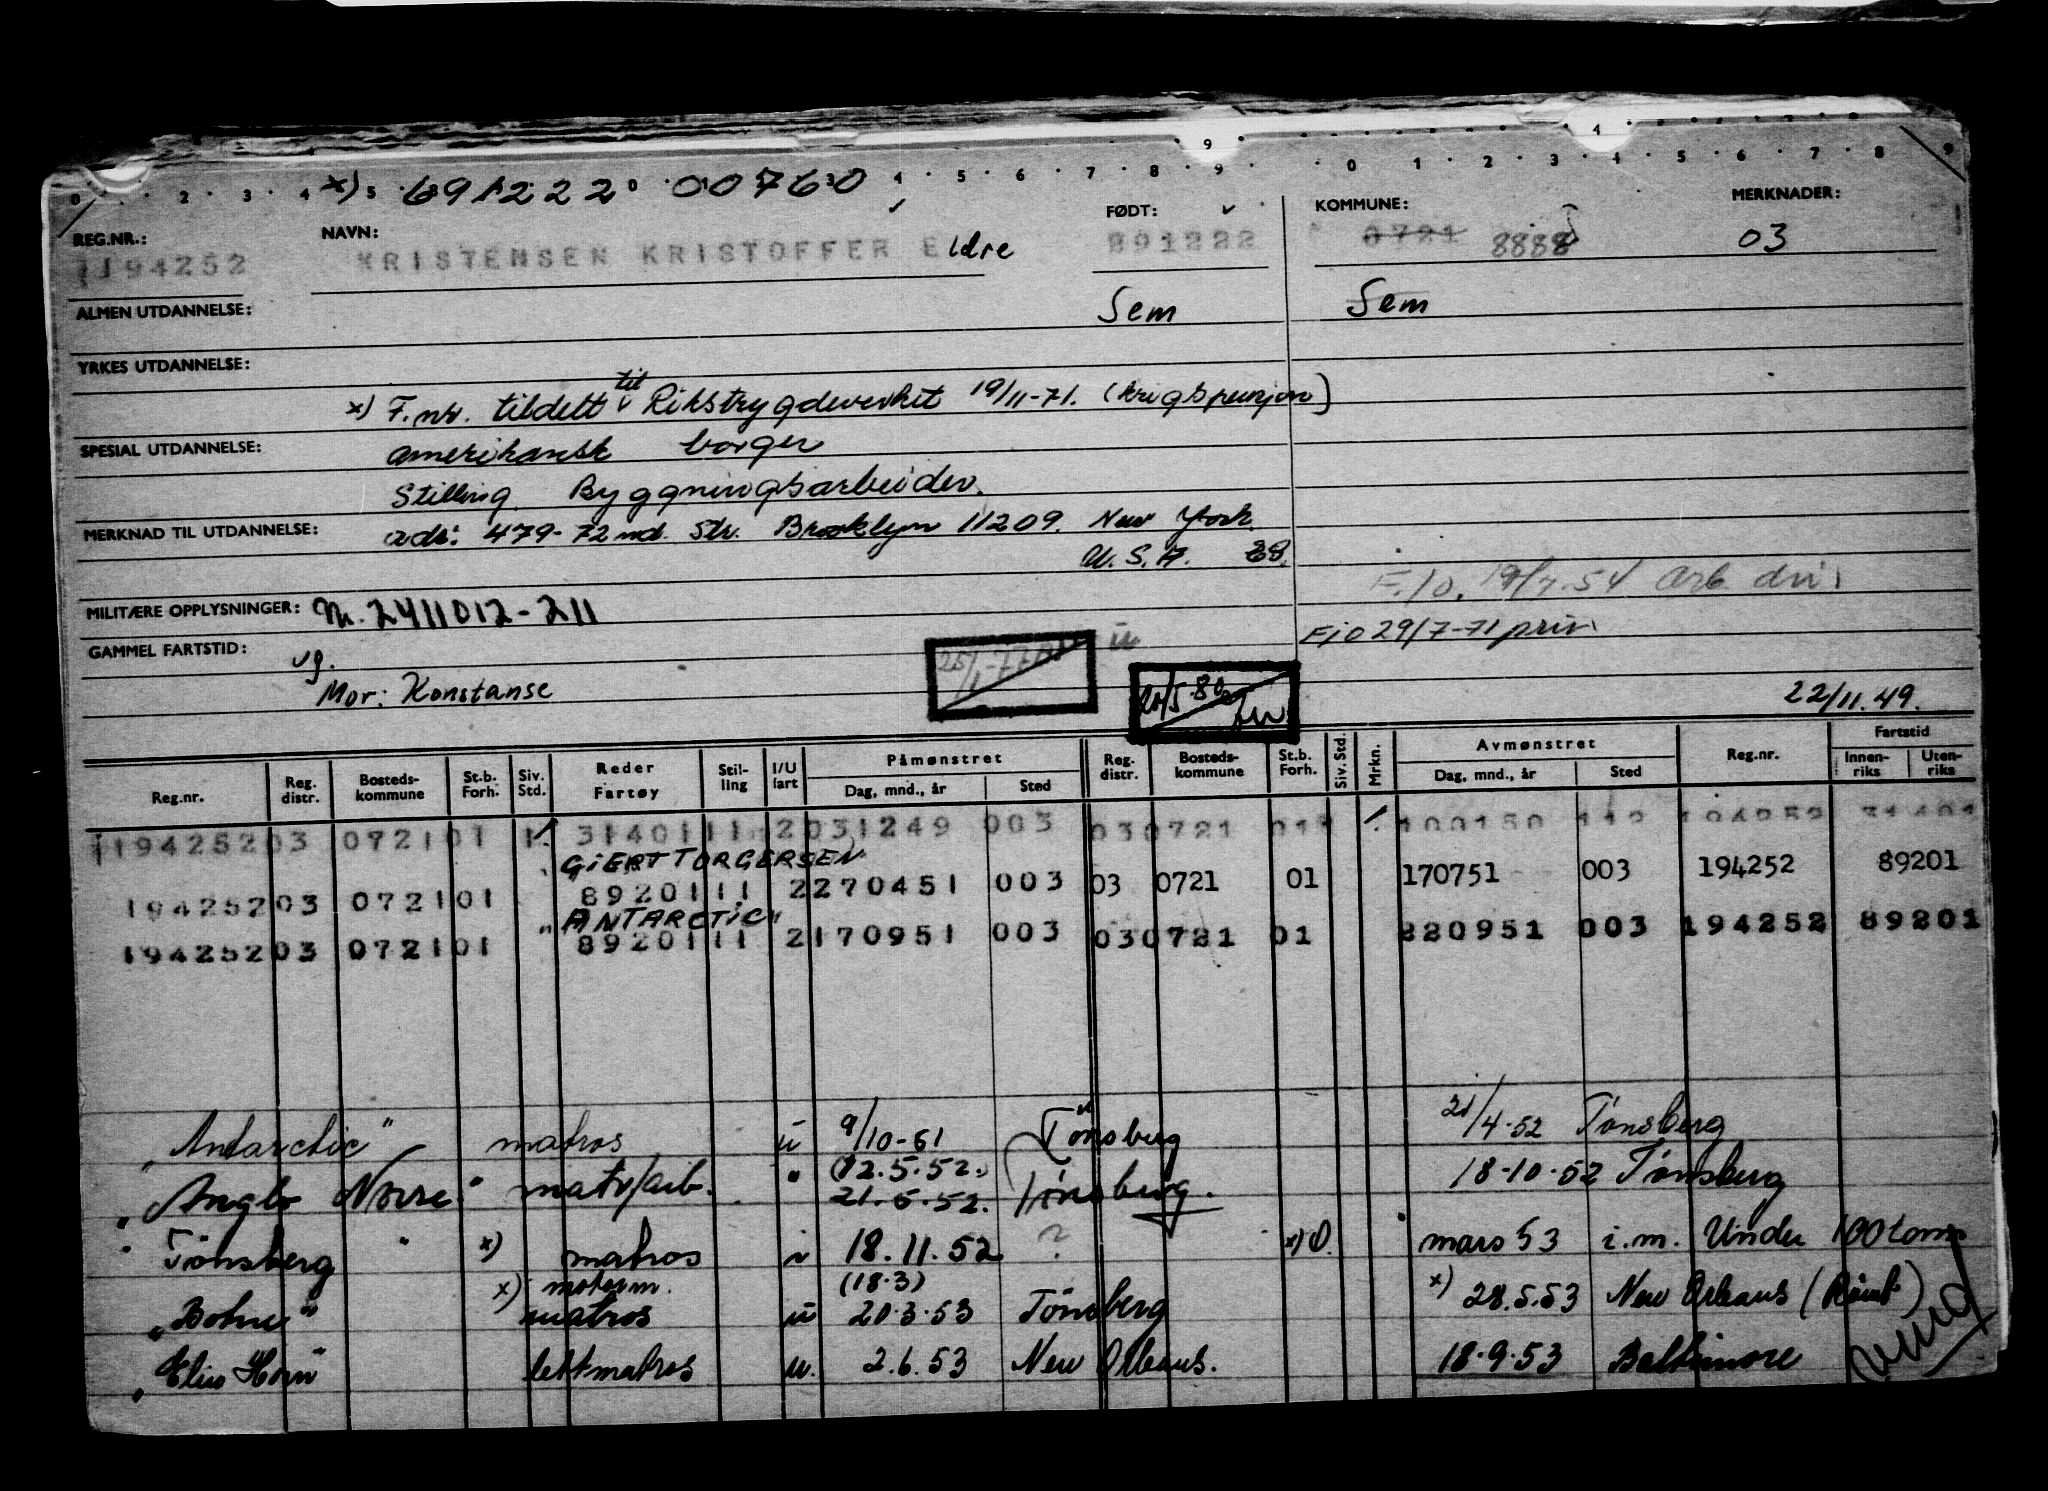 x) 691222 00760
REG.NR.: NAVN: FØDT: KOMMUNE: MERKNADER:
194252 KRISTENSEN KRISTOFFER Eldre 891222 0721 8888 03
ALMEN UTDANNELSE: Sem Sem
YRKES UTDANNELSE:
x) F.nr. tildelt til Rikstrygdeverket 19/11-71. (krigspensjon)
SPESIAL UTDANNELSE: amerikansk borger
Stilling Byggningsarbeider.
MERKNAD TIL UTDANNELSE: adr: 479-72nd. Str. Brooklyn 11209. New York
U.S.A. 28.
F.10. 19/7-54 arb. div.
MILITÆRE OPPLYSNINGER: M. 2411012-211
Fio 29/7-71 priv.
GAMMEL FARTSTID: vg.
Mor: Konstanse
20/5-80
22/11.49.
Reg.nr. Reg. distr. Bosteds-kommune St.b. Forh. Siv. Std. Reder Fartøy Stil-ling I/U fart Påmønstret Dag, mnd., år Sted Reg. distr. Bosteds-kommune St.b. Forh. Siv. Std. Mrkn. Avmønstret Dag, mnd., år Sted Reg.nr. Fartstid Innen-riks Uten-riks
194252 03 0721 01 1 31401 11 2 031249 003 03 0721 01 100150 112 194252 31401
GIERT TORGERSEN
194252 03 0721 01 89201 11 2 270451 003 03 0721 01 170751 003 194252 89201
"ANTARCTIC"
194252 03 0721 01 89201 11 2 170951 003 03 0721 01 220951 003 194252 89201
"Antarctic" matros u 9/10-51 Tønsberg 21/4-52 Tønsberg
"Anglo Norse" matr/arb. " (12.5.52.) 21.5.52. Tønsberg. 18-10-52 Tønsberg
"Tønsberg" x) matros i 18.11.52 ? x) mars 53 i.m. Under 100 tons
x) motorm. (18.3)
matros u 20.3.53 Tönsberg x) 28.5.53 New Orleans
"Elin Horn" lettmatros u. 2.6.53 New Orleans. 18.9.53 Baltimore